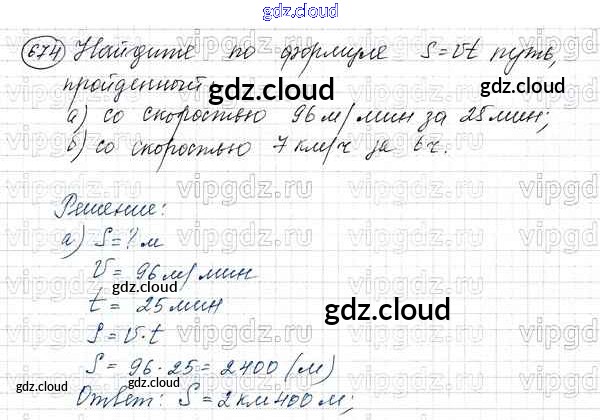 gdz.cloud
674 Найдите по формуле S=Vt путь,
пройденный:
gdz.cloud
а) со скоростью 96 м/мин за 25 мин;
б) со скоростью 7 км/ч за 6 ч.
vipgdz.ru vipgdz.ru vipgdz.ru
Решение:
gdz.cloud
а) S=? м
V = 96 м/мин
gdz.cloud
t = 25 мин
gdz.cloud
S=V·t
S = 96·25 = 2400 (м)
gdz.cloud gdz.cloud
Ответ: S = 2 км 400 м;